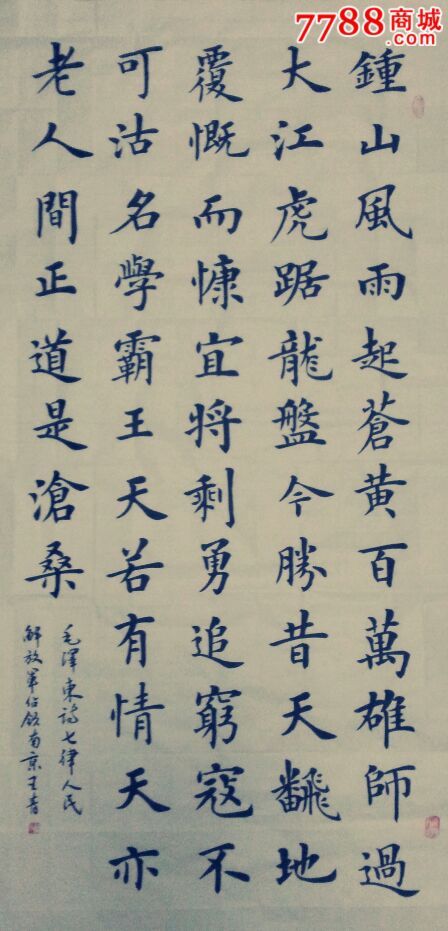 7788商城
.com
鍾山風雨起蒼黄百萬雄師過
大江虎踞龍盤今勝昔天飜地
覆慨而慷宜將剩勇追窮寇不
可沽名學霸王天若有情天亦
老人間正道是滄桑
毛澤東詩七律人民
解放軍佔領南京王